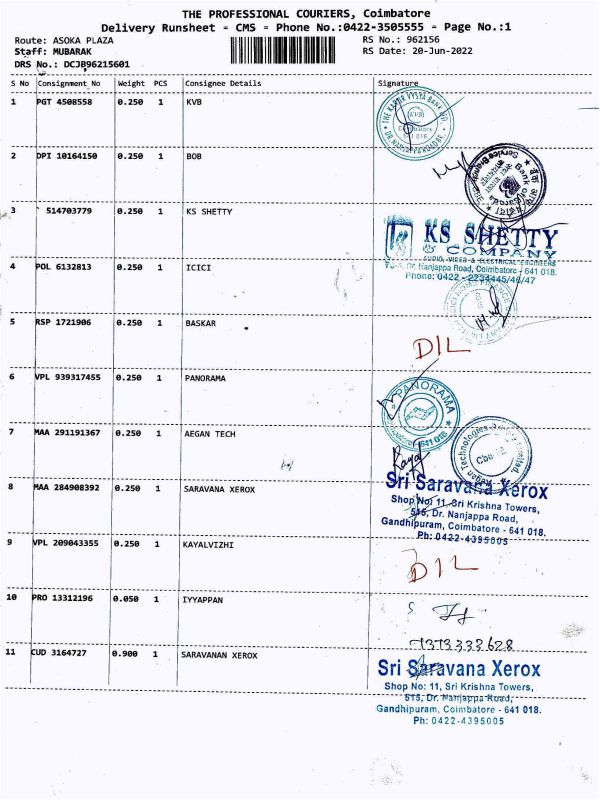 THE PROFESSIONAL COURIERS, Coimbatore
Delivery Runsheet = CMS = Phone No.:0422-3505555 = Page No.:1
Route: ASOKA PLAZA RS No.: 962156
Staff: MUBARAK RS Date: 20-Jun-2022
DRS No.: DCJB96215601
S No Consignment_No Weight PCS Consignee Details Signature
1 PGT 4508558 0.250 1 KVB
THE KARUR VYSYA BANK
KVB
Coimbatore
641 018
2 DPI 10164150 0.250 1 BOB
Service Branch
3 514703779 0.250 1 KS SHETTY
KS SHETTY
& COMPANY
AUDIO, VIDEO & ELECTRICAL ENGINEERS
Dr. Nanjappa Road, Coimbatore - 641 018.
Phone: 0422 - 2234445/46/47
4 POL 6132813 0.250 1 ICICI
5 RSP 1721906 0.250 1 BASKAR
DIL
6 VPL 939317455 0.250 1 PANORAMA
PANORAMA
Coimbatore - 641 018
7 MAA 291191367 0.250 1 AEGAN TECH
Technologies
8 MAA 284908392 0.250 1 SARAVANA XEROX
Sri Saravana Xerox
Shop No: 11, Sri Krishna Towers,
515, Dr. Nanjappa Road,
Gandhipuram, Coimbatore - 641 018.
Ph: 0422-4395005
9 VPL 209043355 0.250 1 KAYALVIZHI
DIL
10 PRO 13312196 0.050 1 IYYAPPAN
7373333628
11 CUD 3164727 0.900 1 SARAVANAN XEROX
Sri Saravana Xerox
Shop No: 11, Sri Krishna Towers,
515, Dr. Nanjappa Road,
Gandhipuram, Coimbatore - 641 018.
Ph: 0422-4395005